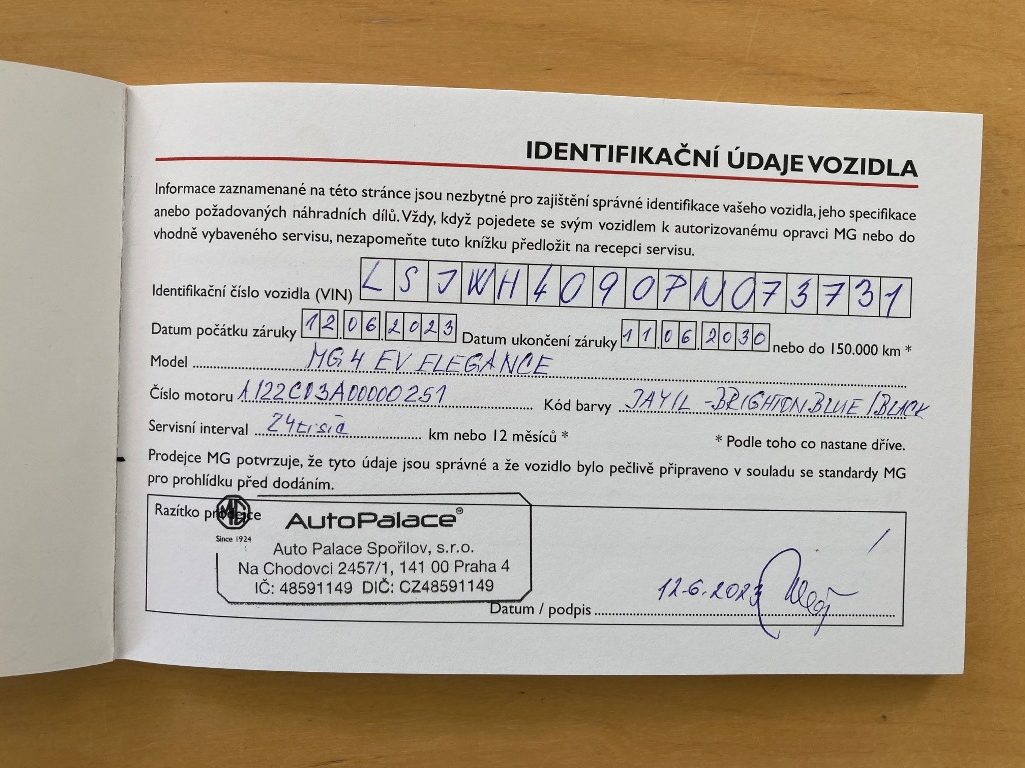 IDENTIFIKAČNÍ ÚDAJE VOZIDLA
Informace zaznamenané na této stránce jsou nezbytné pro zajištění správné identifikace vašeho vozidla, jeho specifikace
anebo požadovaných náhradních dílů. Vždy, když pojedete se svým vozidlem k autorizovanému opravci MG nebo do
vhodně vybaveného servisu, nezapomeňte tuto knížku předložit na recepci servisu.
Identifikační číslo vozidla (VIN) LSJWH4090PN073731
Datum počátku záruky 12.06.2023 Datum ukončení záruky 11.06.2030 nebo do 150.000 km *
Model MG4 EV ELEGANCE
Číslo motoru Kód barvy -BRIGHTON BLUE/BLACK
Servisní interval 24tisíc km nebo 12 měsíců * * Podle toho co nastane dříve.
Prodejce MG potvrzuje, že tyto údaje jsou správné a že vozidlo bylo pečlivě připraveno v souladu se standardy MG
pro prohlídku před dodáním.
Razítko prodejce
MG
Since 1924
AutoPalace®
Auto Palace Spořilov, s.r.o.
Na Chodovci 2457/1, 141 00 Praha 4
IČ: 48591149 DIČ: CZ48591149
Datum / podpis 12.6.2023